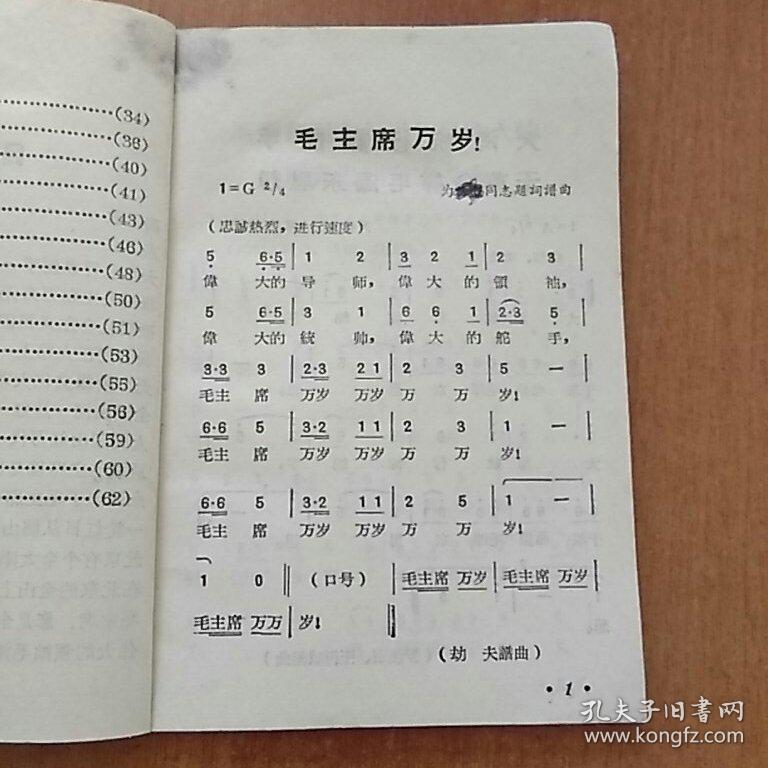 ……(34)
……(36)
……(40)
……(41)
……(43)
……(46)
……(48)
……(50)
……(51)
……(53)
……(55)
……(56)
……(59)
……(60)
……(62)
毛主席万岁！
1=G 2/4
为 同志题詞譜曲
（忠誠热烈，进行速度）
5 6·5 | 1 2 | 3 2 1 | 2 3 |
偉 大的 导 师， 偉 大 的 領 袖，
5 6·5 | 3 1 | 6 6 1 | 2·3 5 |
偉 大的 統 帅， 偉 大 的 舵 手，
3·3 3 | 2·3 2 1 | 2 3 | 5 — |
毛主 席 万岁 万岁 万 万 岁！
6·6 5 | 3·2 1 1 | 2 3 | 1 — |
毛主 席 万岁 万岁 万 万 岁！
6·6 5 | 3·2 1 1 | 2 5 | 1 — |
毛主 席 万岁 万岁 万 万 岁！
1 0 ‖ （口号） | 毛主席 万岁 | 毛主席 万岁 |
毛主席 万万 | 岁！ ‖
（劫 夫譜曲）
·1·
孔夫子旧书网
www.kongfz.com